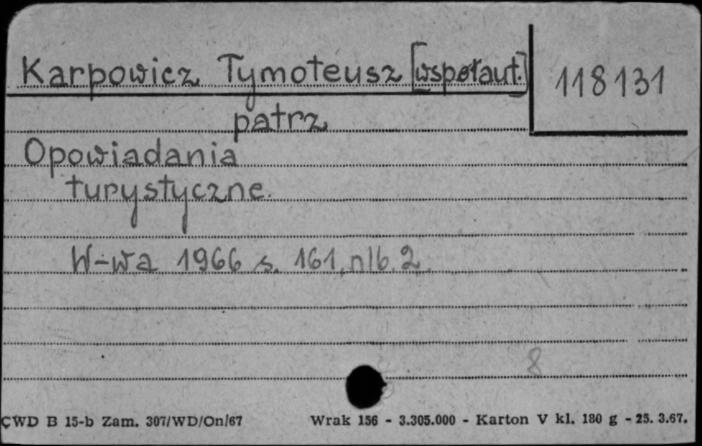 Karpowicz Tymoteusz [współaut.] 118131
patrz
Opowiadania
turystyczne.
W-wa 1966 s. 161, nlb. 2.
8
CWD B 15-b Zam. 307/WD/On/67 Wrak 156 - 3.305.000 - Karton V kl. 180 g - 25. 3.67.